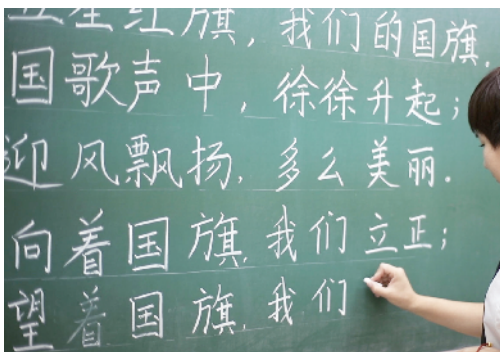 五星红旗，我们的国旗.
国歌声中，徐徐升起；
迎风飘扬，多么美丽.
向着国旗，我们立正；
望着国旗，我们